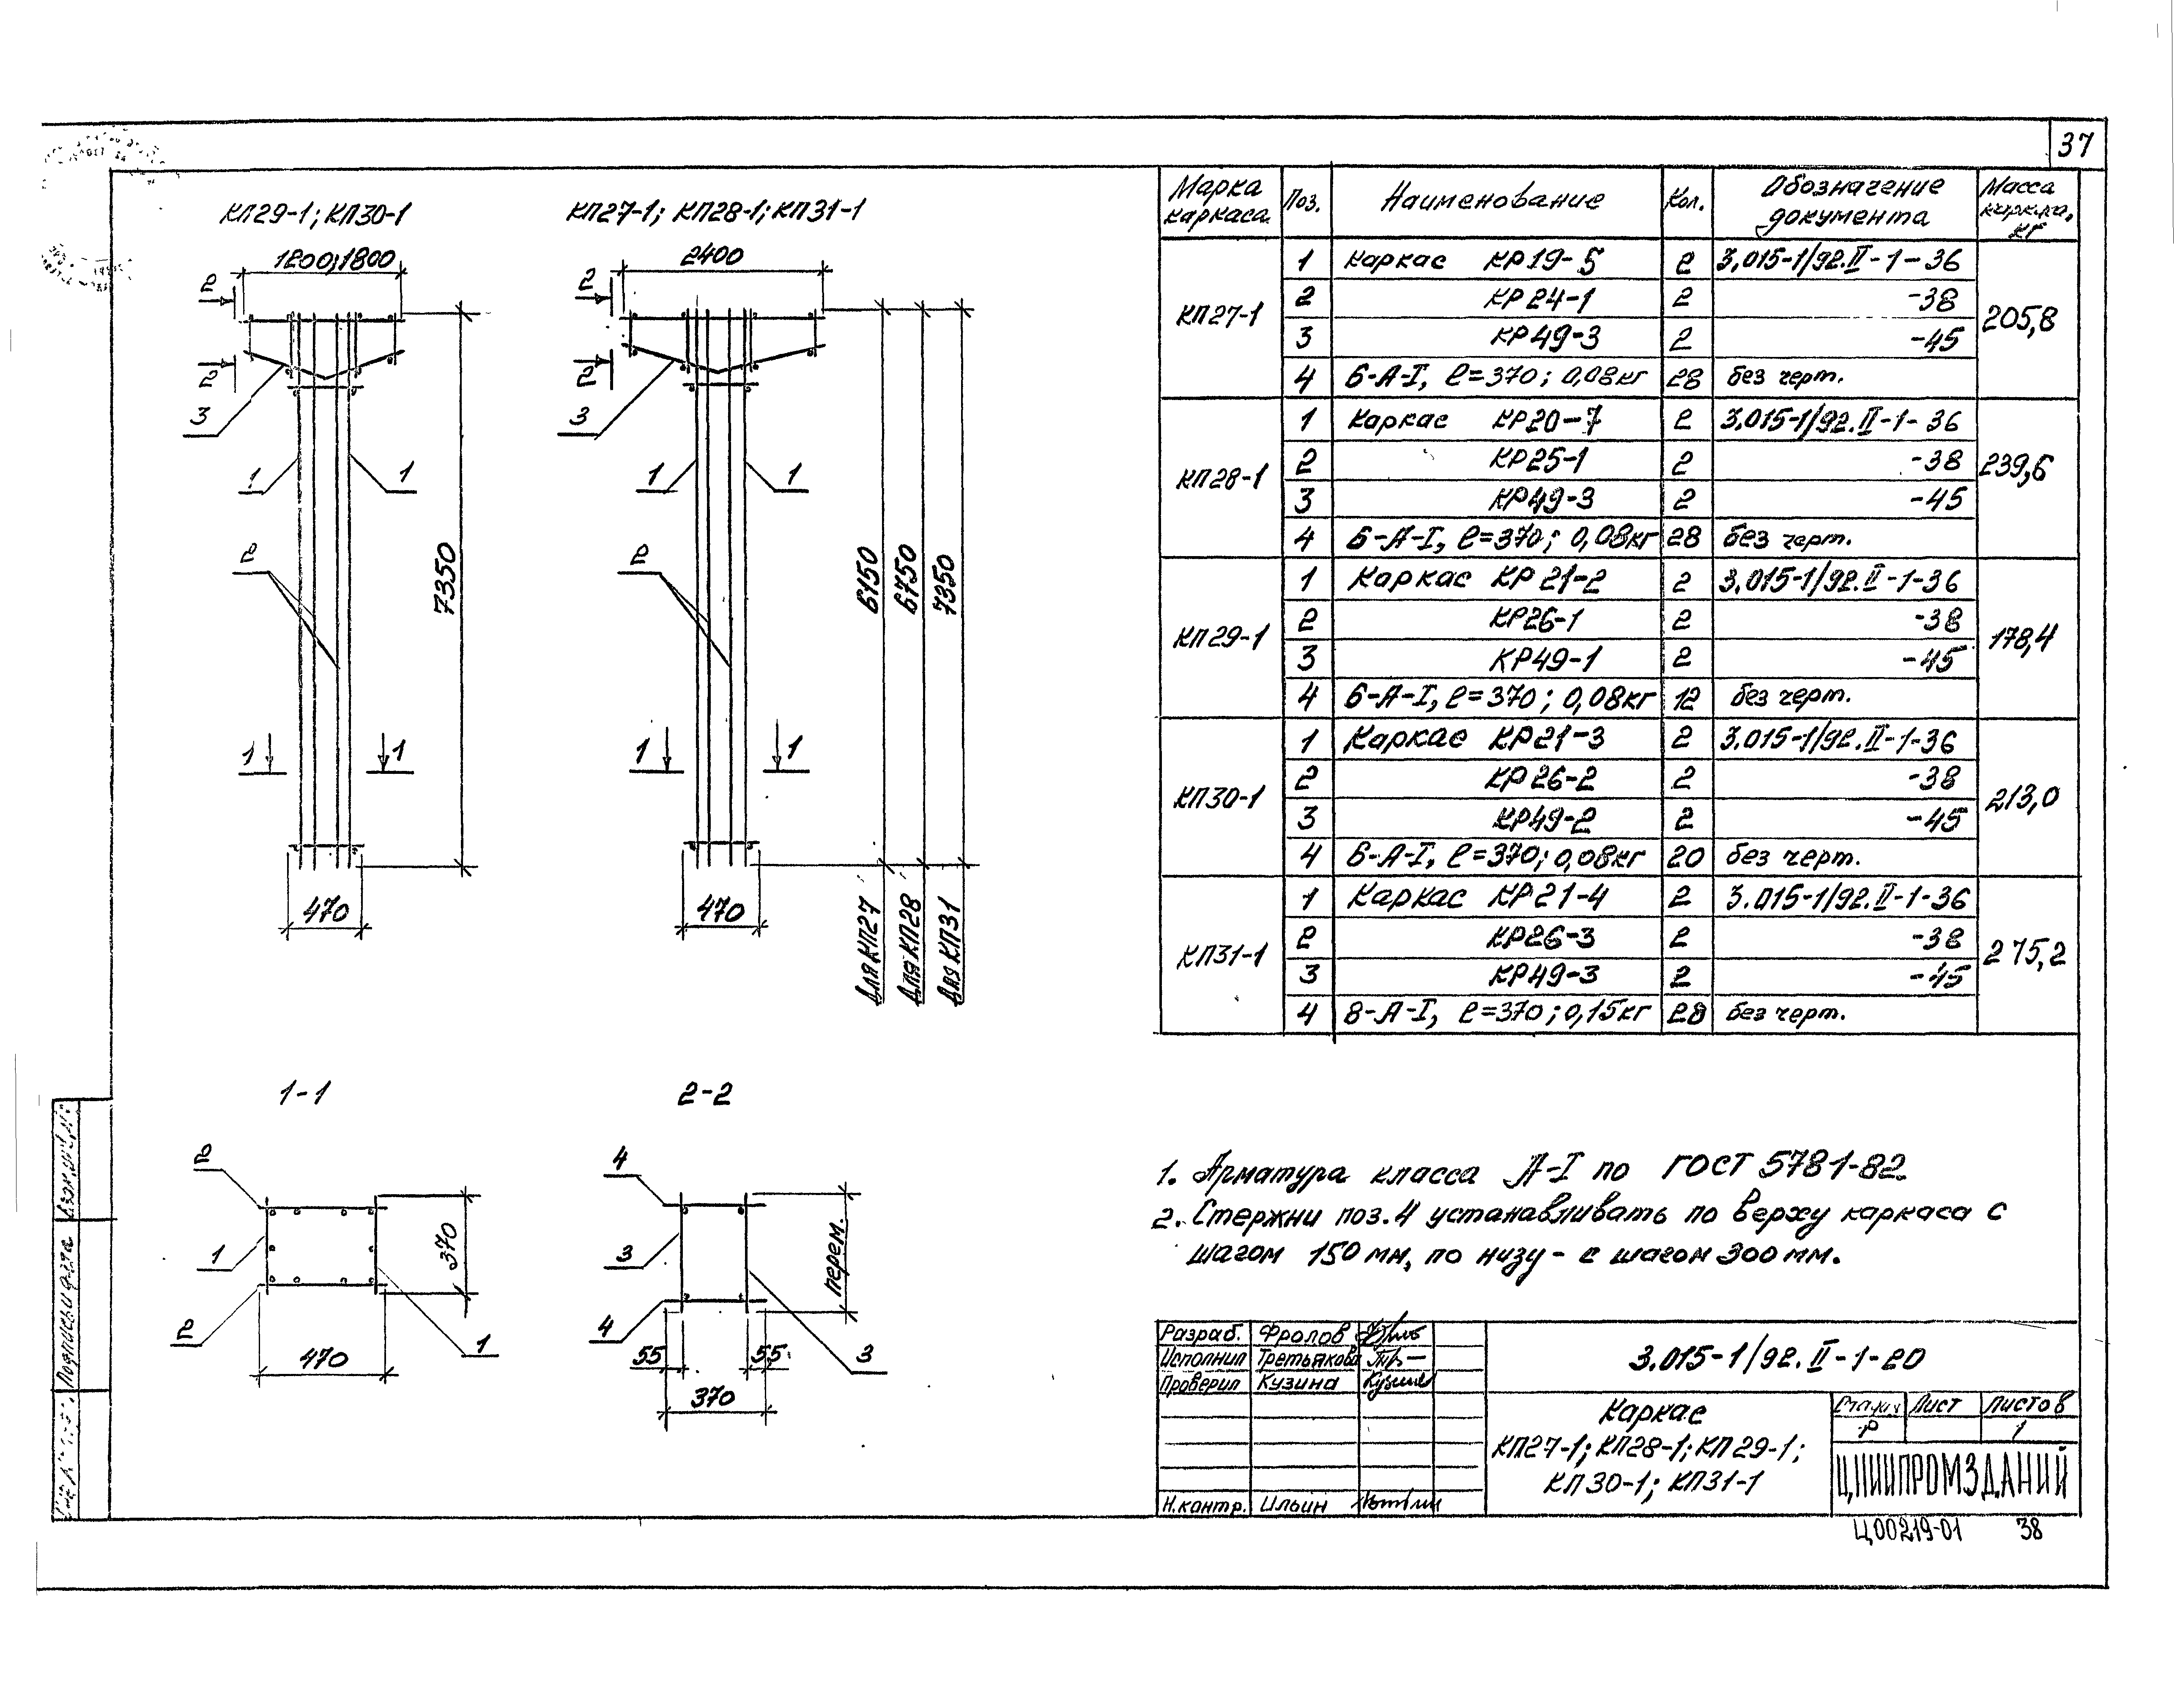 37
КП29-1; КП30-1
КП27-1; КП28-1; КП31-1
1200; 1800
2400
2
2
2
2
3
3
1
1
1
1
2
2
7350
6150
6750
7350
1
1
1
1
470
470
Для КП27
Для КП28
Для КП31
Марка каркаса
Поз.
Наименование
Кол.
Обозначение документа
Масса каркаса, кг
КП27-1
1 Каркас КР19-5 2 3.015-1/92.II-1-36
2 КР24-1 2 -38
3 КР49-3 2 -45
4 6-А-I, ℓ=370; 0,08кг 28 без черт.
205,8
КП28-1
1 Каркас КР20-7 2 3.015-1/92.II-1-36
2 КР25-1 2 -38
3 КР49-3 2 -45
4 6-А-I, ℓ=370; 0,08кг 28 без черт.
239,6
КП29-1
1 Каркас КР21-2 2 3.015-1/92.II-1-36
2 КР26-1 2 -38
3 КР49-1 2 -45
4 6-А-I, ℓ=370; 0,08кг 12 без черт.
178,4
КП30-1
1 Каркас КР21-3 2 3.015-1/92.II-1-36
2 КР26-2 2 -38
3 КР49-2 2 -45
4 6-А-I, ℓ=370; 0,08кг 20 без черт.
213,0
КП31-1
1 Каркас КР21-4 2 3.015-1/92.II-1-36
2 КР26-3 2 -38
3 КР49-3 2 -45
4 8-А-I, ℓ=370; 0,15кг 28 без черт.
275,2
1-1
2
1
2
1
370
470
2-2
4
3
4
3
перем.
55
55
370
1. Арматура класса А-I по ГОСТ 5781-82.
2. Стержни поз.4 устанавливать по верху каркаса с
шагом 150 мм, по низу - с шагом 300 мм.
Разраб. Фролов
Исполнил Третьякова
Проверил Кузина
Н.контр. Ильин
3.015-1/92.II-1-20
Каркас
КП27-1; КП28-1; КП29-1;
КП30-1; КП31-1
Стадия Лист Листов
Р 1
ЦНИИПРОМЗДАНИЙ
Ц00219-01 38
Подпись и дата